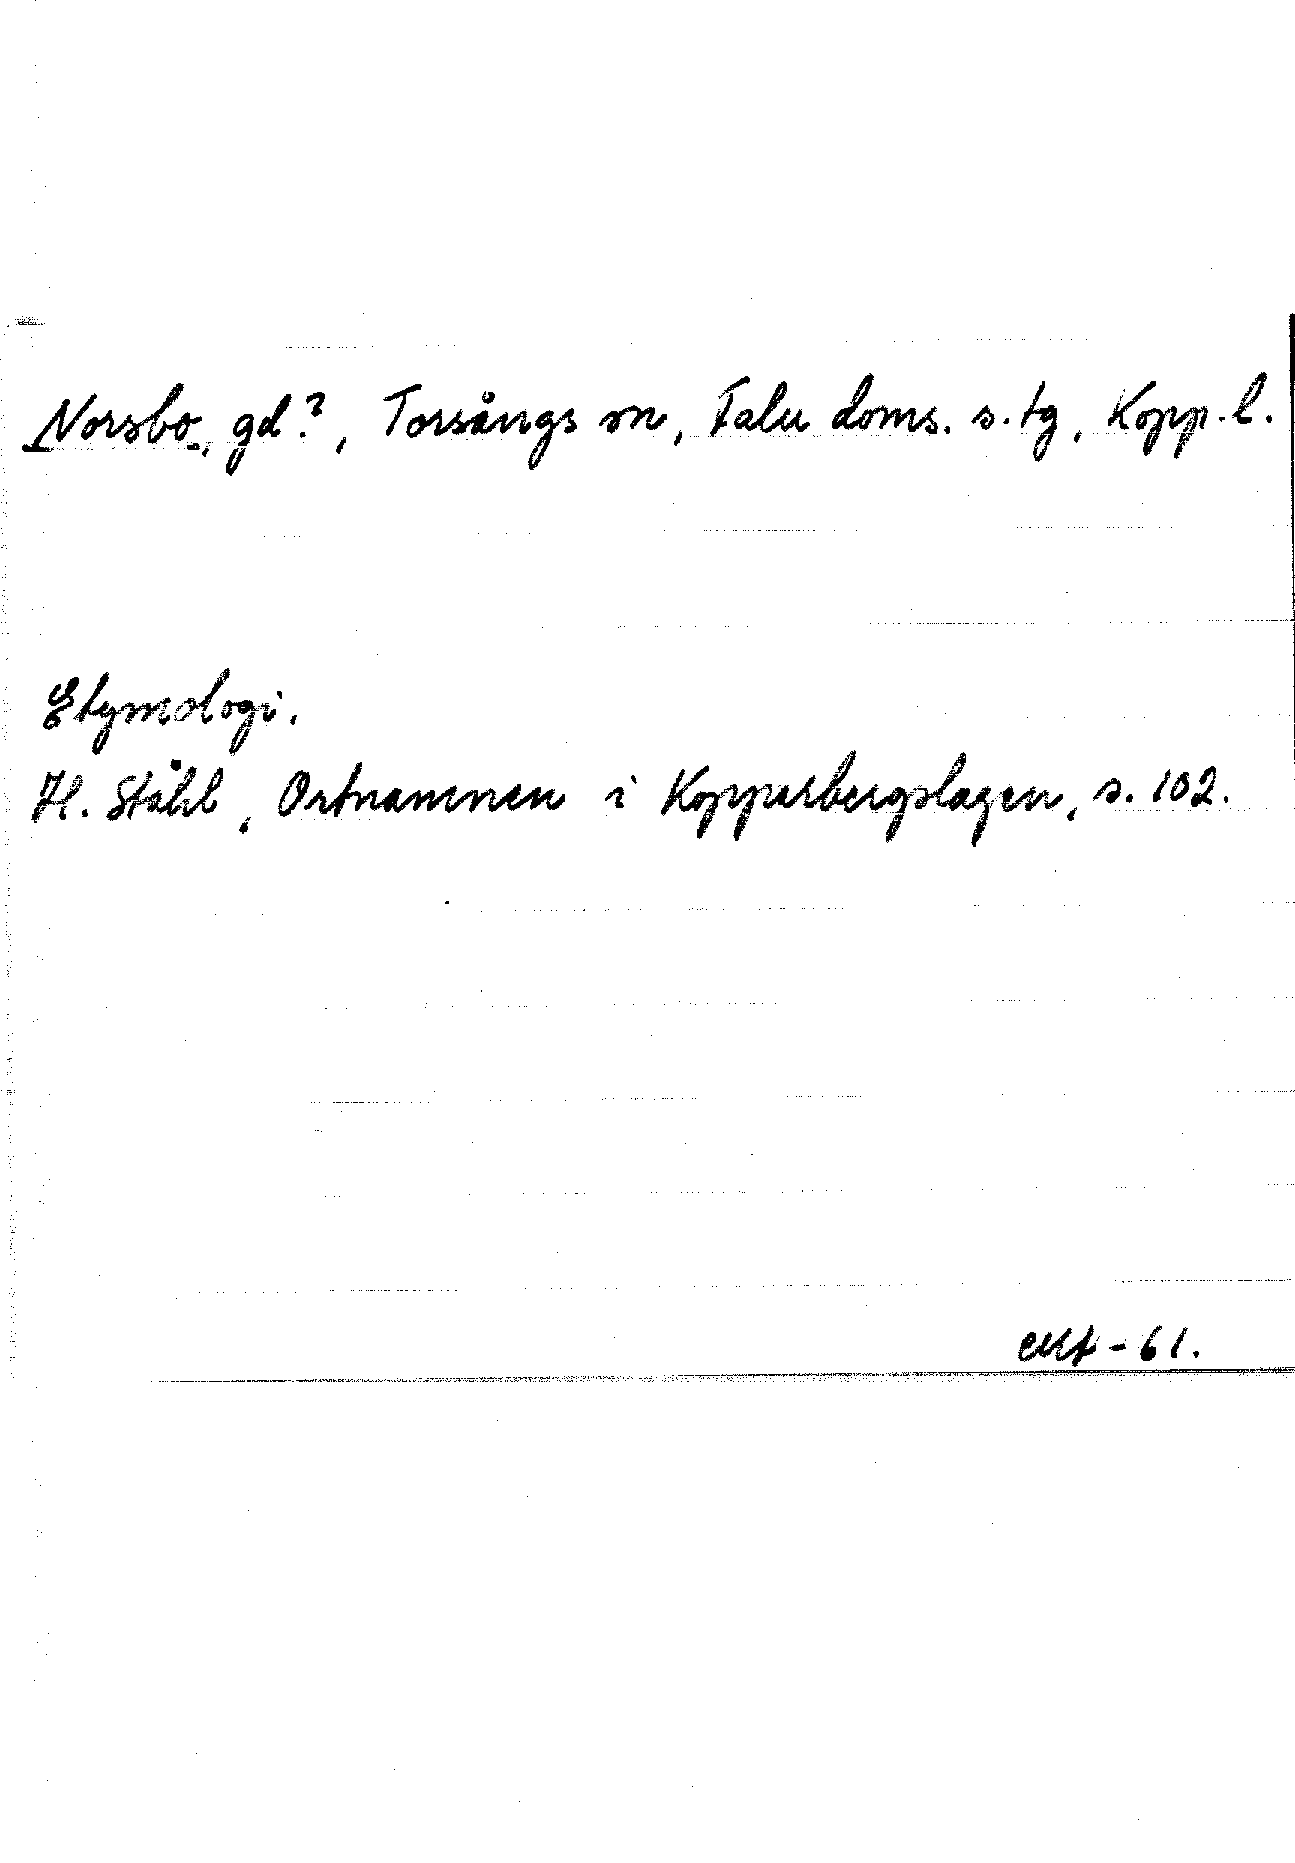 Norsbo, gd?, Torsångs sn, Falu doms. s. tg, Kopp. l.
Etymologi.
H. Ståhl, Ortnamnen i Kopparbergslagen, s. 102.
-61.